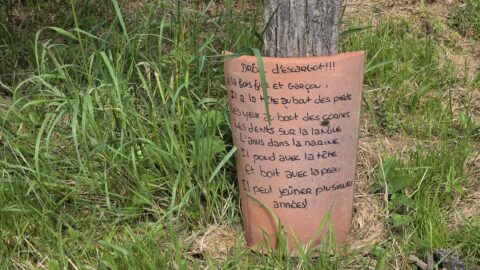 DRÔLE d'ESCARGOT!!!
À la fois fille et garçon,
Il a la tête au bout des pieds
Les yeux au bout des cornes
Les dents sur la langue
L'anus dans la narine.
Il pond avec la tête
Et boit avec la peau
Il peut jeûner plusieurs
années!